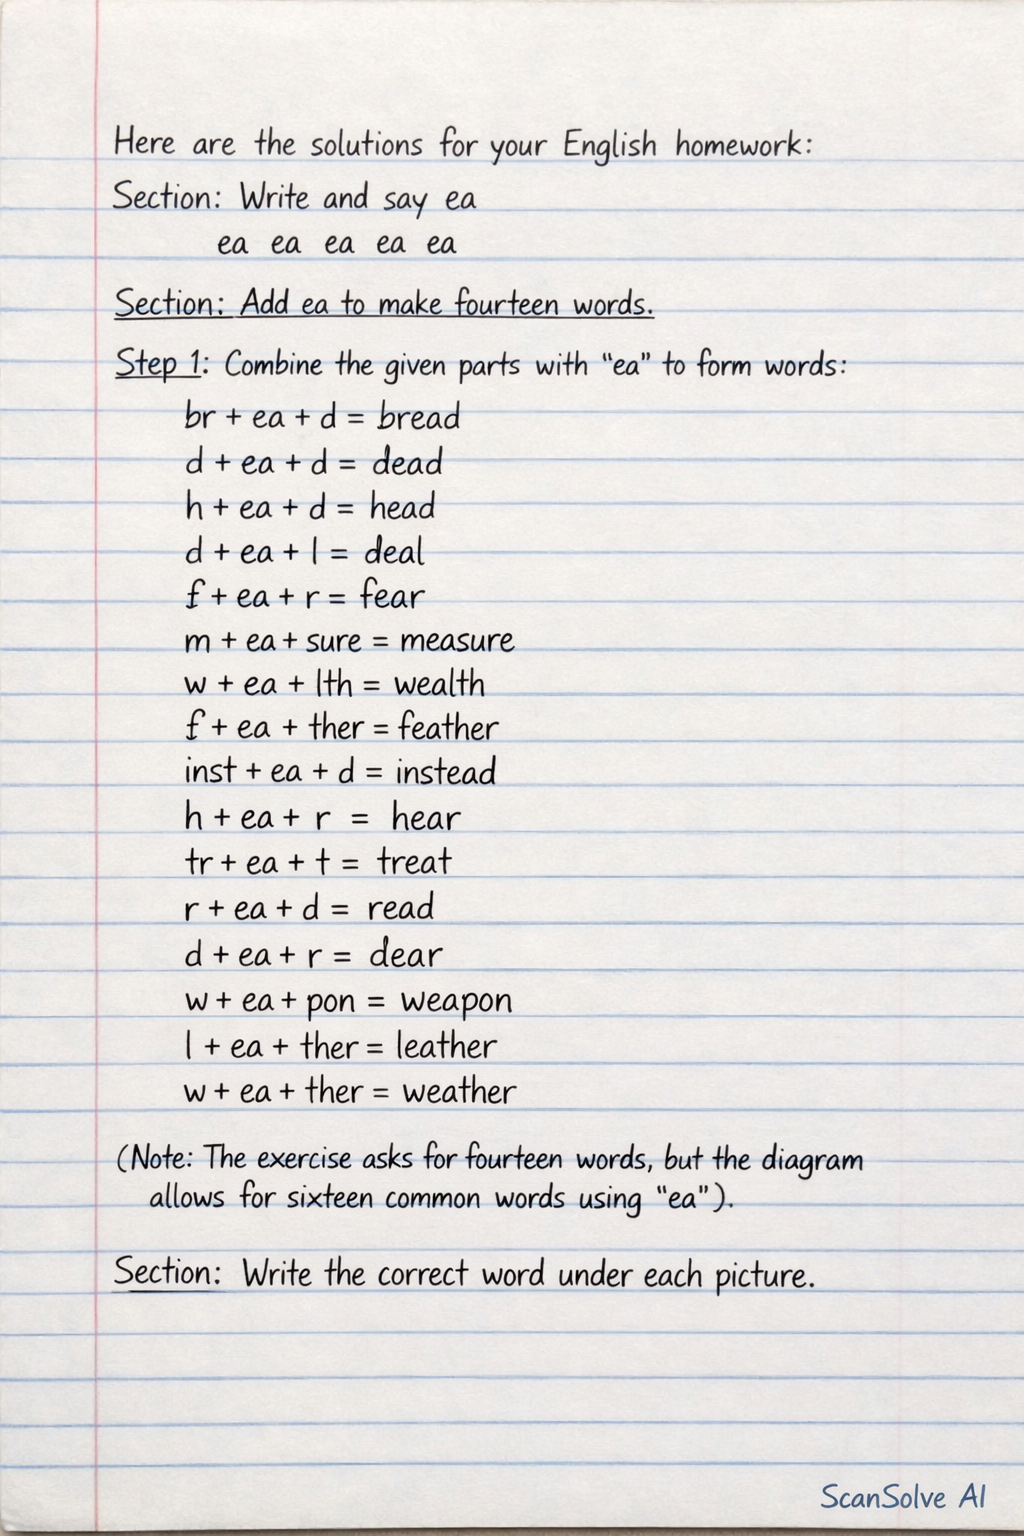 Here are the solutions for your English homework:
Section: Write and say ea
ea ea ea ea ea
Section: Add ea to make fourteen words.
Step 1: Combine the given parts with "ea" to form words:
br + ea + d = bread
d + ea + d = dead
h + ea + d = head
d + ea + l = deal
f + ea + r = fear
m + ea + sure = measure
w + ea + lth = wealth
f + ea + ther = feather
inst + ea + d = instead
h + ea + r = hear
tr + ea + t = treat
r + ea + d = read
d + ea + r = dear
w + ea + pon = weapon
l + ea + ther = leather
w + ea + ther = weather
(Note: The exercise asks for fourteen words, but the diagram
allows for sixteen common words using "ea").
Section: Write the correct word under each picture.
ScanSolve AI